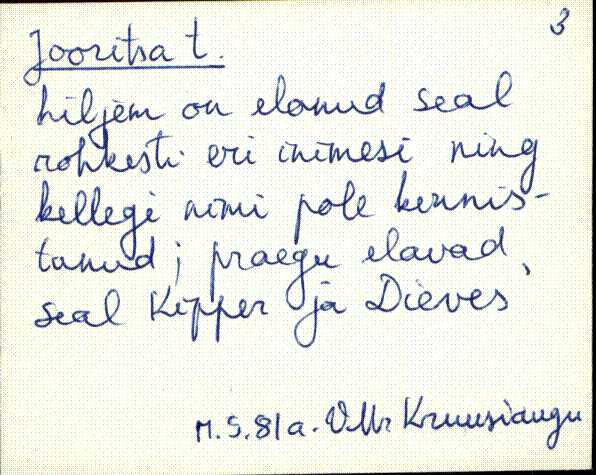 3
Jooritsa t.
hiljem on elanud seal
rohkesti eri inimesi ning
kellegi nimi pole kinnis-
tunud; praegu elavad
seal Kipper ja Dieves
M.S. 81 a. Kruusiaugu